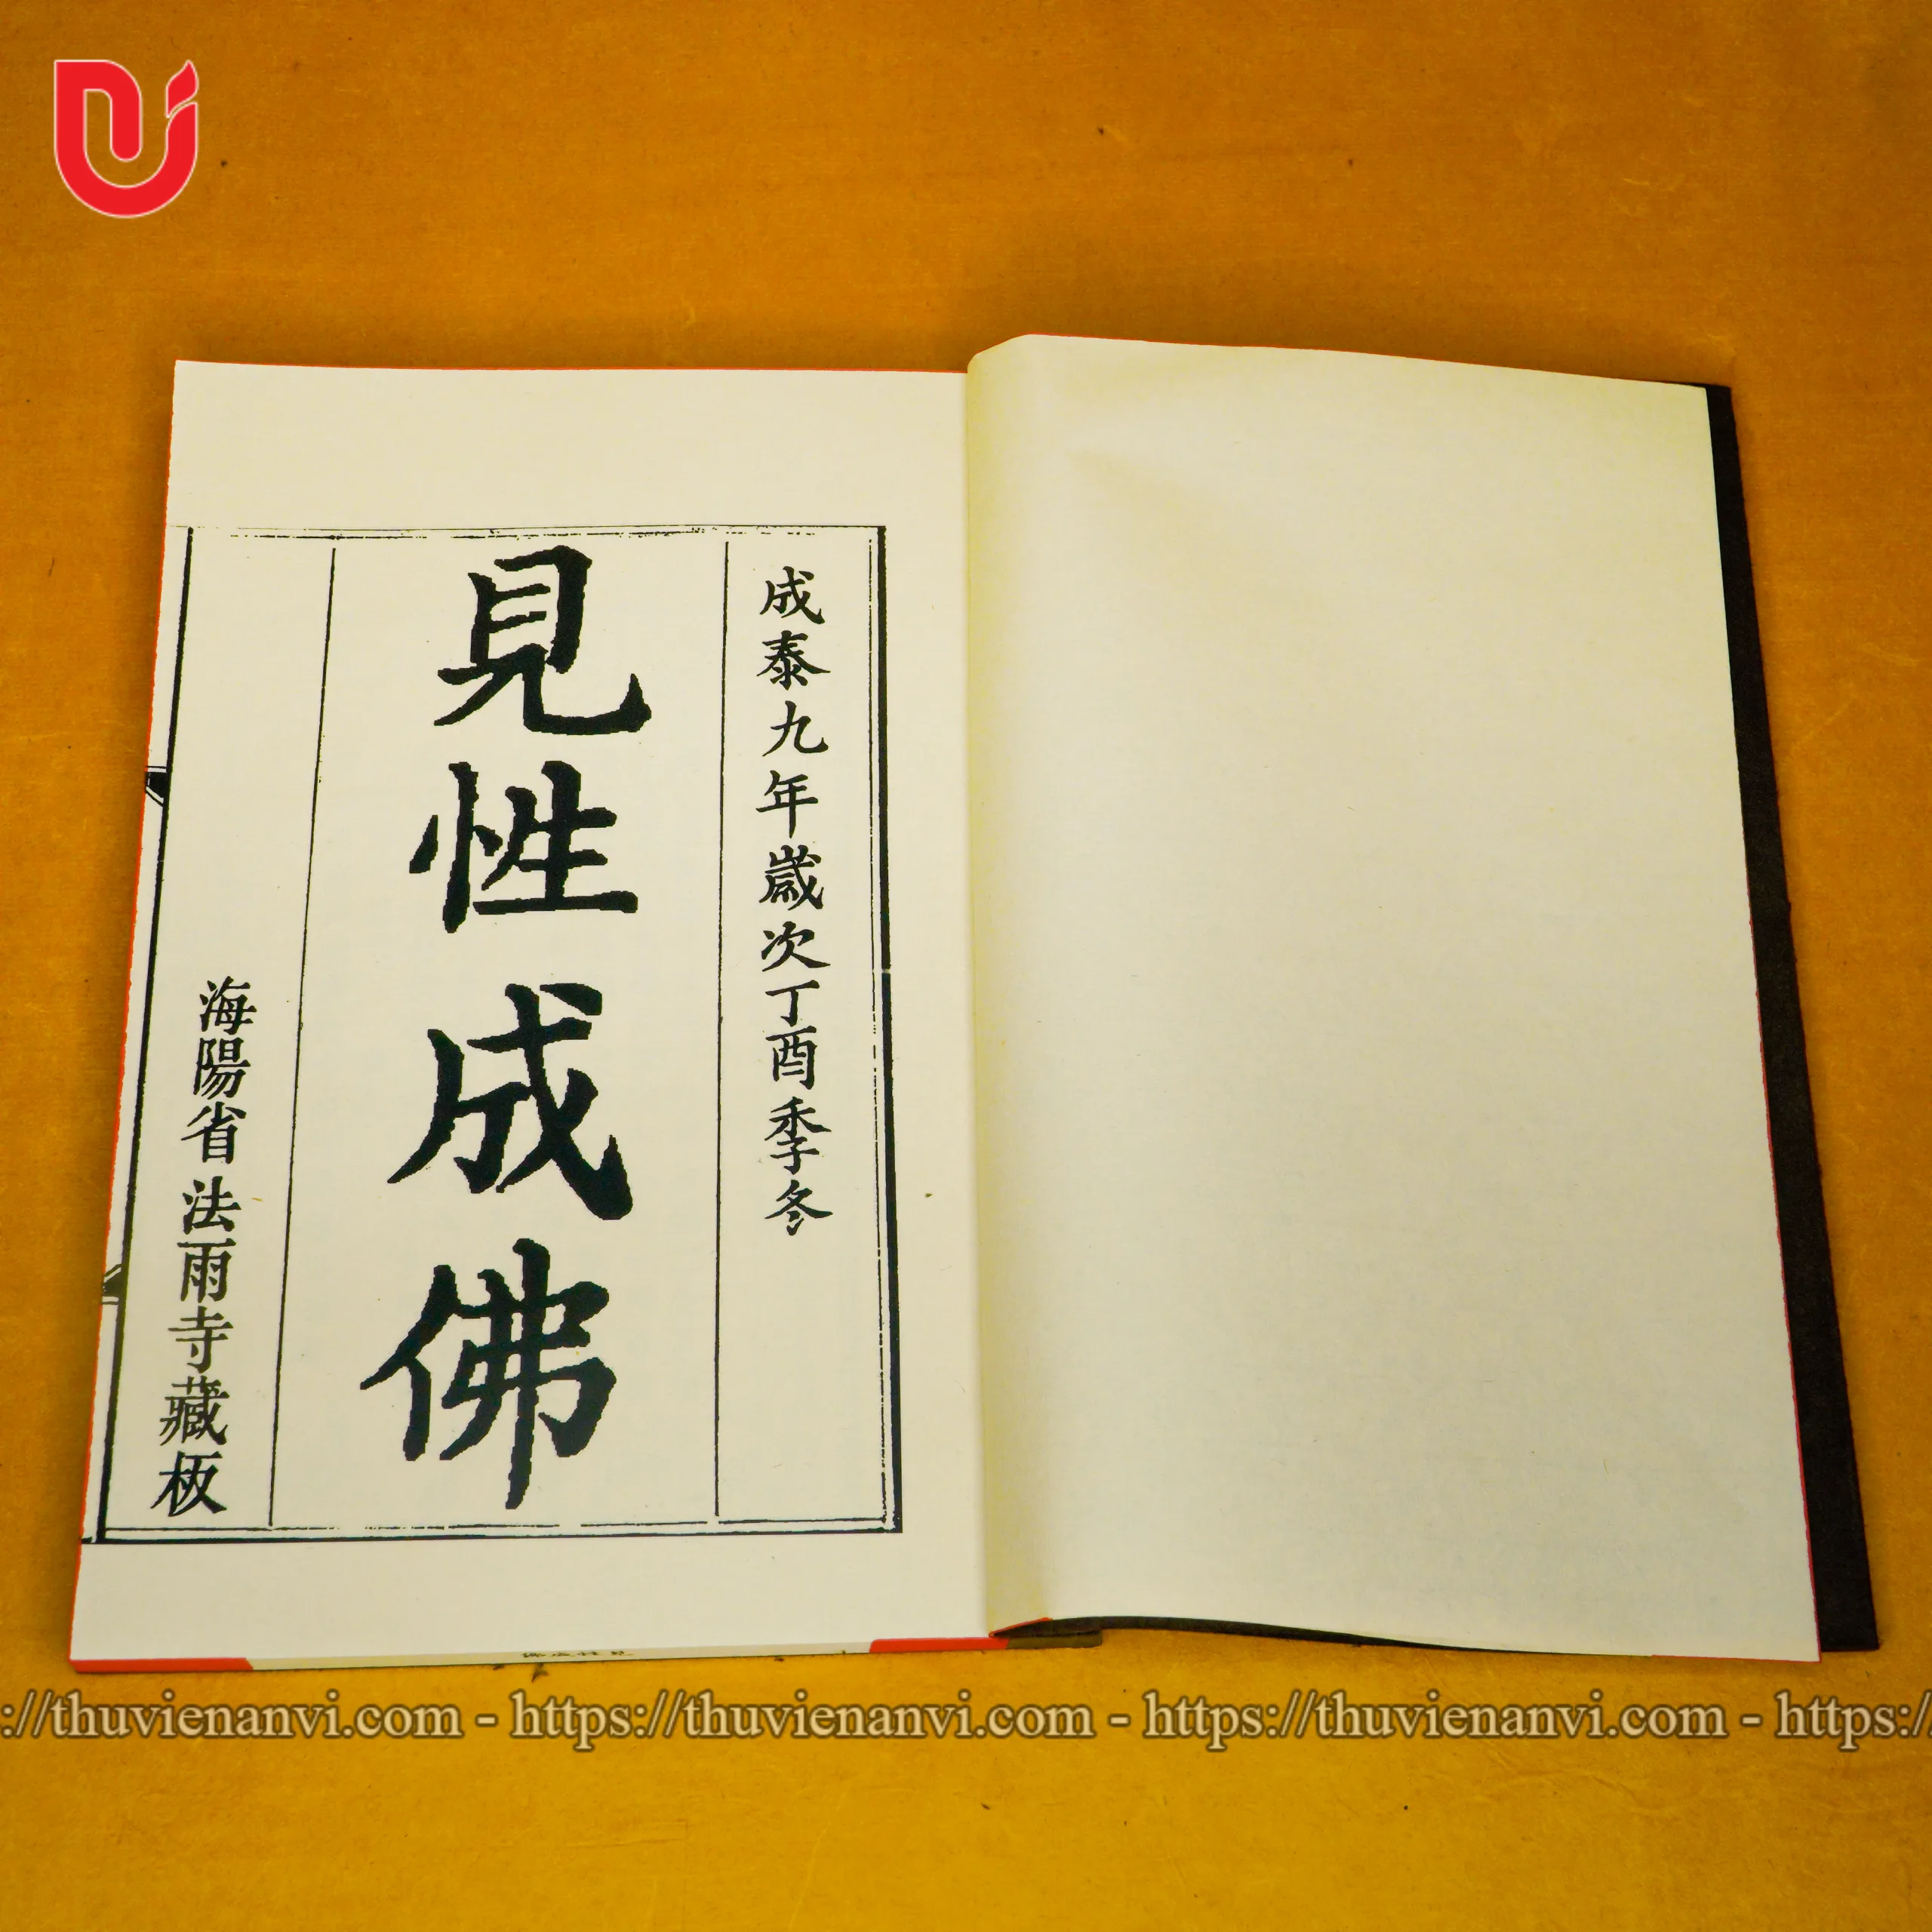 成泰九年歲次丁酉季冬
見性成佛
海陽省法雨寺藏板
://thuvienanvi.com - https://thuvienanvi.com - https://thuvienanvi.com - https:/